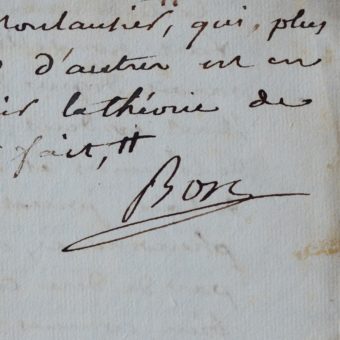 Montlausier, qui, plus
d'autres est en
la théorie de
fait, //
Bosc